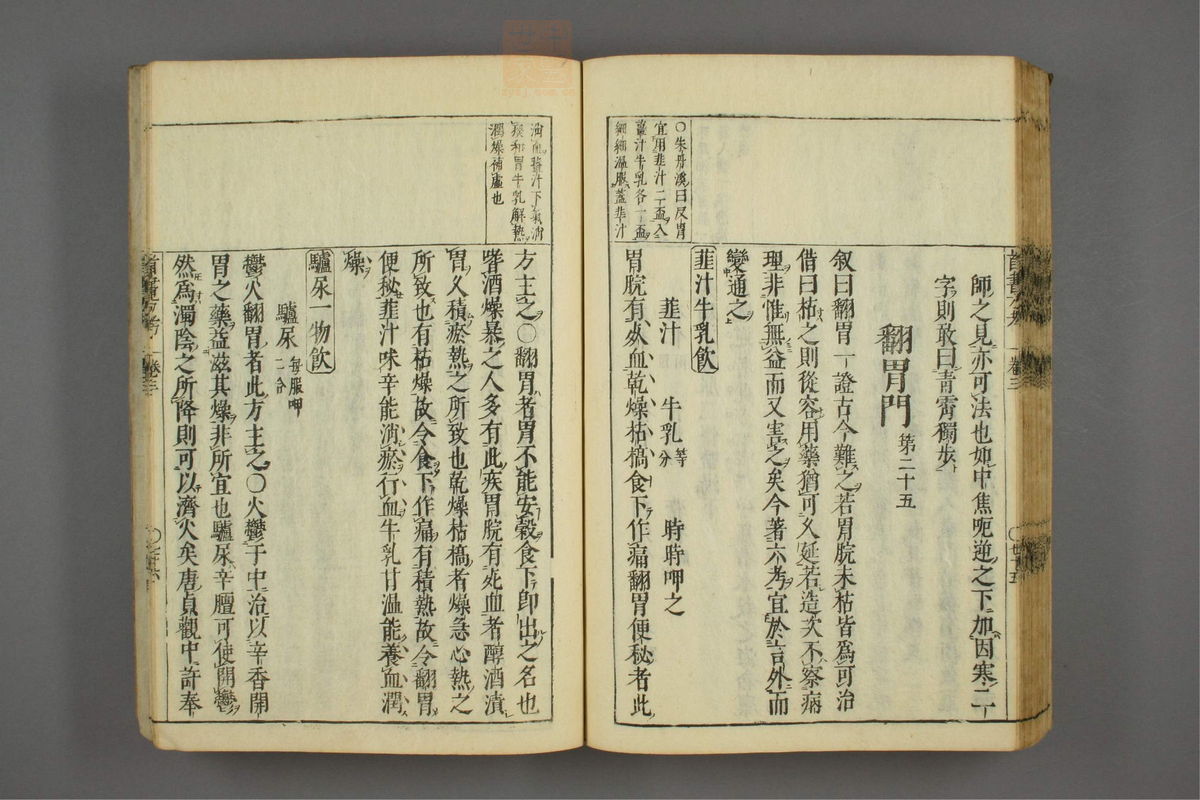 ○朱丹溪曰反胃
宜用韭汁二盃入
薑汁牛乳各一盃
細細溫服蓋韭汁
師之見亦可法也如中焦呃逆之下加因寒二
字則敢曰青霄獨步
翻胃門 第二十五
叙曰翻胃一證古今難之若胃脘未枯皆爲可治
借曰枯之則從容用藥猶可久延若造次不察病
理非惟無益而又害之矣今著六考宜於言外而
變通之
韭汁牛乳飲
韭汁 牛乳等分 時時呷之
胃脘有死血乾燥枯槁食下作痛翻胃便秘者此
消血薑汁下氣消
痰和胃牛乳解熱
潤燥補虛也
方主之○翻胃者胃不能安穀食下卽出之名也
嗜酒燥暴之人多有此疾胃脘有死血者醇酒漬
胃久積瘀熱之所致也乾燥枯槁者燥急心熱之
所致也有枯燥故令食下作痛有積熱故令翻胃
便秘韭汁味辛能消瘀行血牛乳甘溫能養血潤
燥
驢尿一物飲
驢尿 每服呷二合
鬱火翻胃者此方主之○火鬱于中治以辛香開
胃之藥益滋其燥非所宜也驢尿辛膻可使開鬱
然爲濁陰之所降則可以濟火矣唐貞觀中許奉